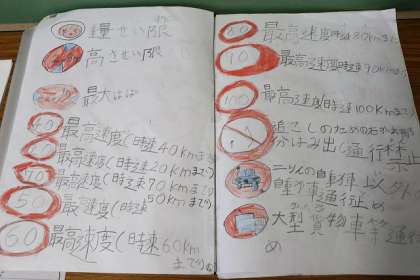 重量せい限
高させい限
最大はば
40 最高速度(時速40kmまで)
最高速度(時速20kmまで)
70 最高速度(時速70kmまで)
50 最高速度(時速50kmまで)
60 最高速度(時速60km
まで)
80 最高速度時速80km
最高速度時速
100 最高速度時速100kmまで
追こしのための右がわ部
分はみ出し通行禁
二りんの自動車以外
自動車通行止め
大型貨物車等通行
め